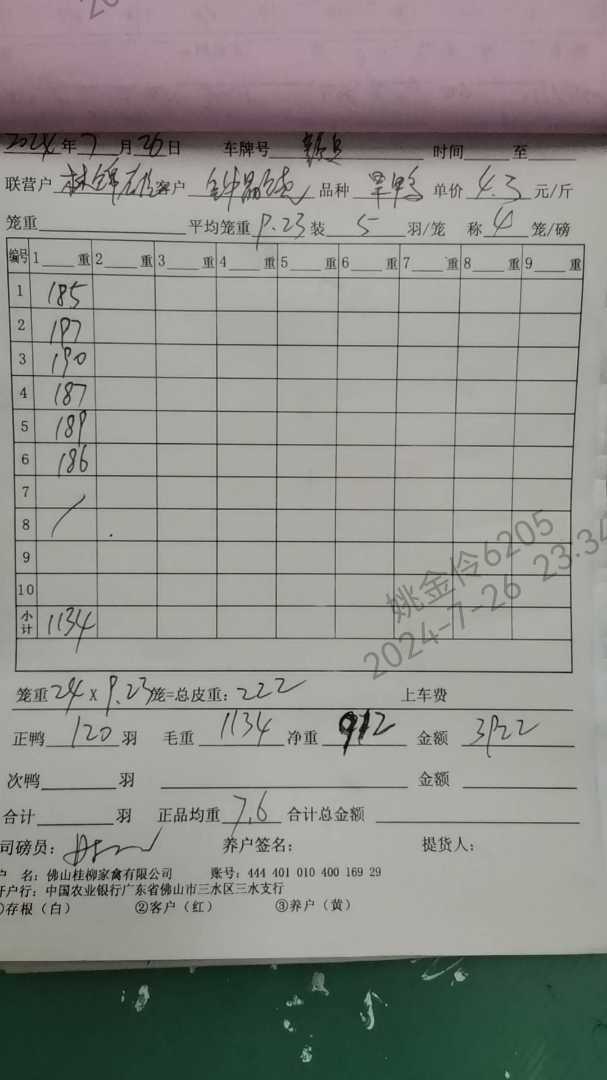 2024年7月26日 车牌号 时间 至
联营户 林锦雄 客户 钟 品种 旱鸭 单价 4.3 元/斤
笼重 平均笼重 9.23 装 5 羽/笼 称 4 笼/磅
编号 1 重 2 重 3 重 4 重 5 重 6 重 7 重 8 重 9 重
1 185
2 197
3 190
4 187
5 189
6 186
7
8 /
9
10
小计 1134
姚金伶6205
2024-7-26 23:34
笼重 24 X 9.23 笼=总皮重: 222 上车费
正鸭 120 羽 毛重 1134 净重 912 金额 3922
次鸭 羽 金额
合计 羽 正品均重 7.6 合计总金额
司磅员: 养户签名: 提货人:
户 名: 佛山桂柳家禽有限公司 账号: 444 401 010 400 169 29
开户行: 中国农业银行广东省佛山市三水区三水支行
①存根（白） ②客户（红） ③养户（黄）